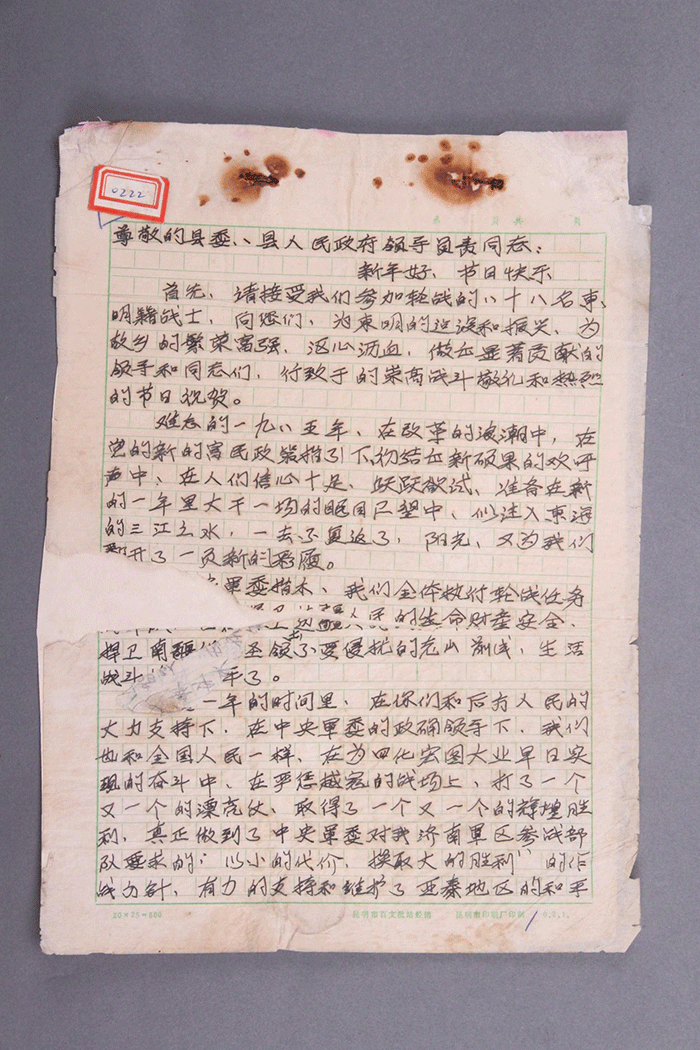 0222
第 页共 页
尊敬的县委、县人民政府领导负责同志:
新年好, 节日快乐
首先, 请接受我们参加轮战的八十八名东
明籍战士, 向您们, 为东明的建设和振兴, 为
故乡的繁荣富强, 沤心沥血, 做出显著贡献的
领导和同志们, 行致于的崇高战斗敬礼和热烈
的节日祝贺。
难忘的一九八五年, 在改革的浪潮中, 在
党的新的富民政策指引下, 初结出新硕果的欢呼
声中、在人们信心十足、跃跃欲试、准备在新
的一年里大干一场的眼目尸望中、似注入东海
的三江之水, 一去不复返了, 阳光、又为我们
开了一页新的彩履。
军委指木、我们全体执行轮战任务
人民的生命财产安全、
捍卫南疆 圣领土不受侵扰的老山前线, 生活
战斗 年了。
一年的时间里、在你们和后方人民的
大力支持下、在中央军委的政确领导下、我们
也和全国人民一样、在为四化宏图大业早日实
现的奋斗中、在严惩越寇的战场上、打了一个
又一个的漂亮仗、取得了一个又一个的辉煌胜
利、真正做到了中央军委对我济南军区参战部
队要求的:"以小的代价, 换取大的胜利"的作
战方针, 有力的支持和维护了西秦地区的和平
20×25=500